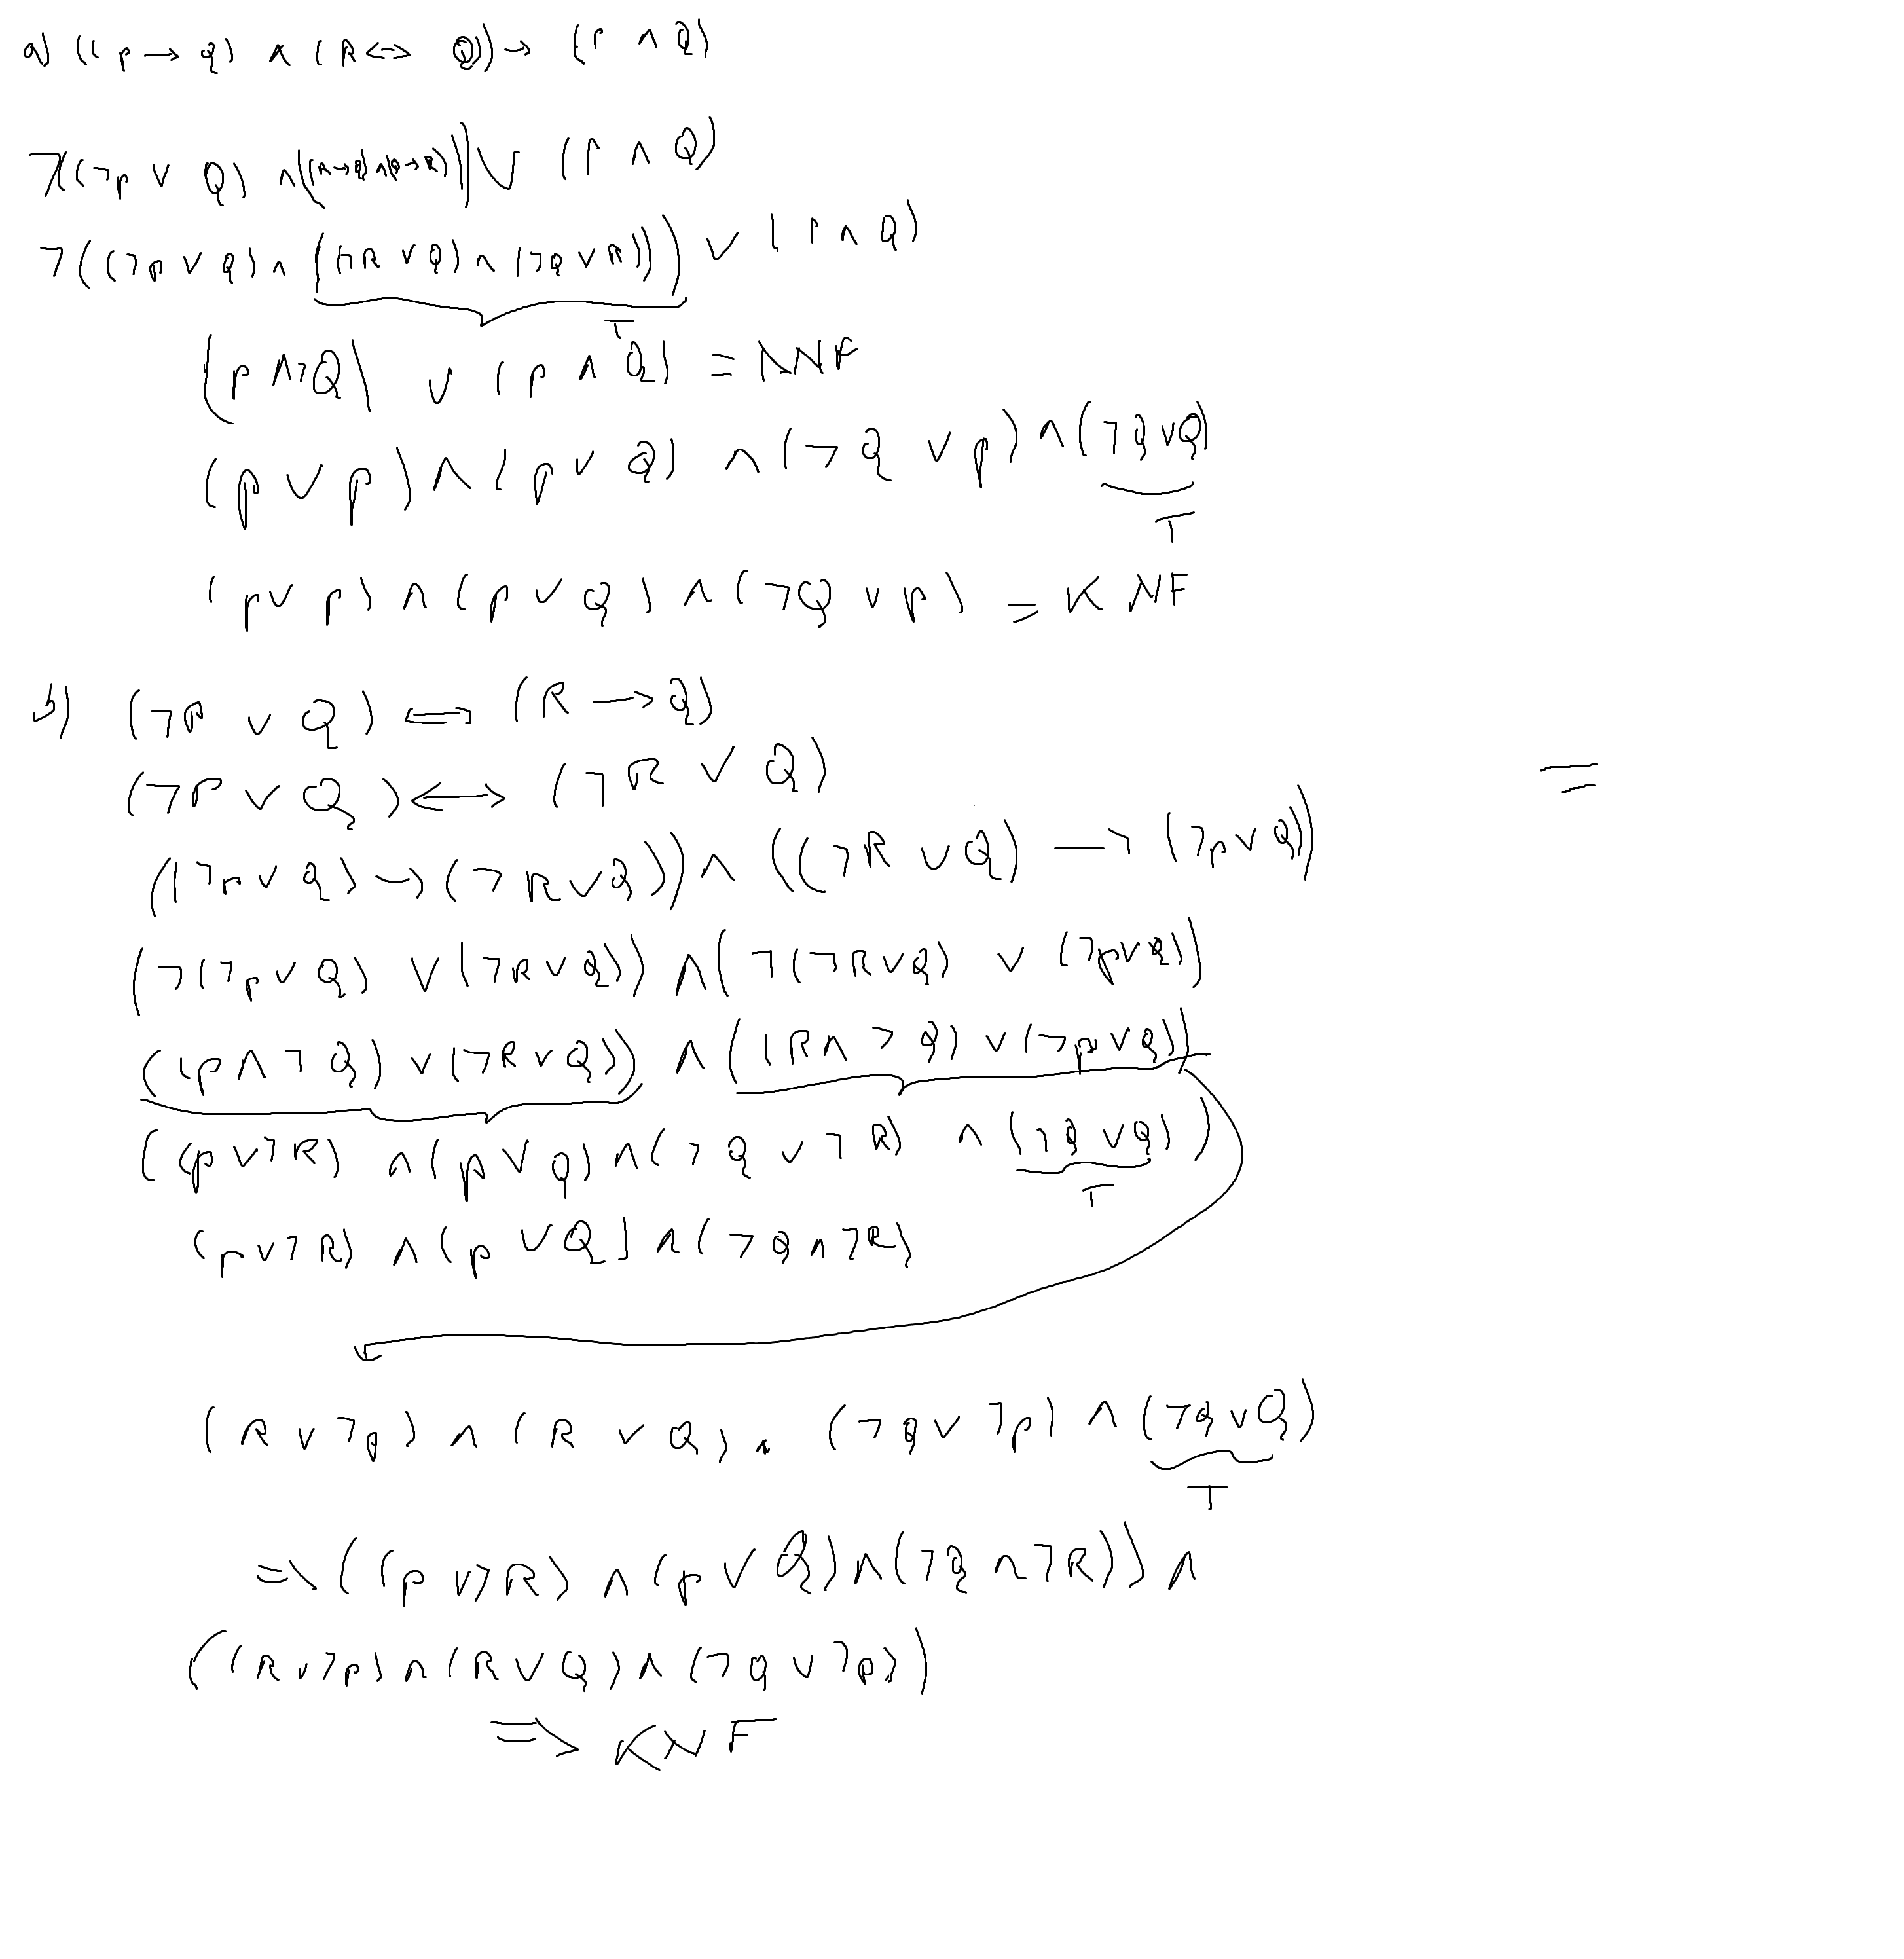 a) ((p → q) ∧ (R <-> Q)) → (P ∧ Q)
¬((¬p ∨ Q) ∧ ((R→Q) ∧ (Q→R))) ∨ (P ∧ Q)
¬((¬p ∨ Q) ∧ ((¬R ∨ Q) ∧ (¬Q ∨ R))) ∨ (P ∧ Q)
T
(p ∧ ¬Q) ∨ (p ∧ Q) = NNF
(p ∨ p) ∧ (p ∨ Q) ∧ (¬Q ∨ p) ∧ (¬Q ∨ Q)
T
(p ∨ p) ∧ (p ∨ Q) ∧ (¬Q ∨ p) = KNF
b) (¬P ∨ Q) <=> (R → Q)
(¬P ∨ Q) <-> (¬R ∨ Q) =
((¬p ∨ Q) → (¬R ∨ Q)) ∧ ((¬R ∨ Q) → (¬p ∨ Q))
(¬(¬p ∨ Q) ∨ (¬R ∨ Q)) ∧ (¬(¬R ∨ Q) ∨ (¬p ∨ Q))
((p ∧ ¬Q) ∨ (¬R ∨ Q)) ∧ ((R ∧ ¬Q) ∨ (¬p ∨ Q))
((p ∨ ¬R) ∧ (p ∨ Q) ∧ (¬Q ∨ ¬R) ∧ (¬Q ∨ Q))
T
(p ∨ ¬R) ∧ (p ∨ Q) ∧ (¬Q ∧ ¬R)
(R ∨ ¬p) ∧ (R ∨ Q) ∧ (¬Q ∨ ¬p) ∧ (¬Q ∨ Q)
T
=> ((p ∨ ¬R) ∧ (p ∨ Q) ∧ (¬Q ∧ ¬R)) ∧
((R ∨ ¬p) ∧ (R ∨ Q) ∧ (¬Q ∨ ¬p))
=> KNF